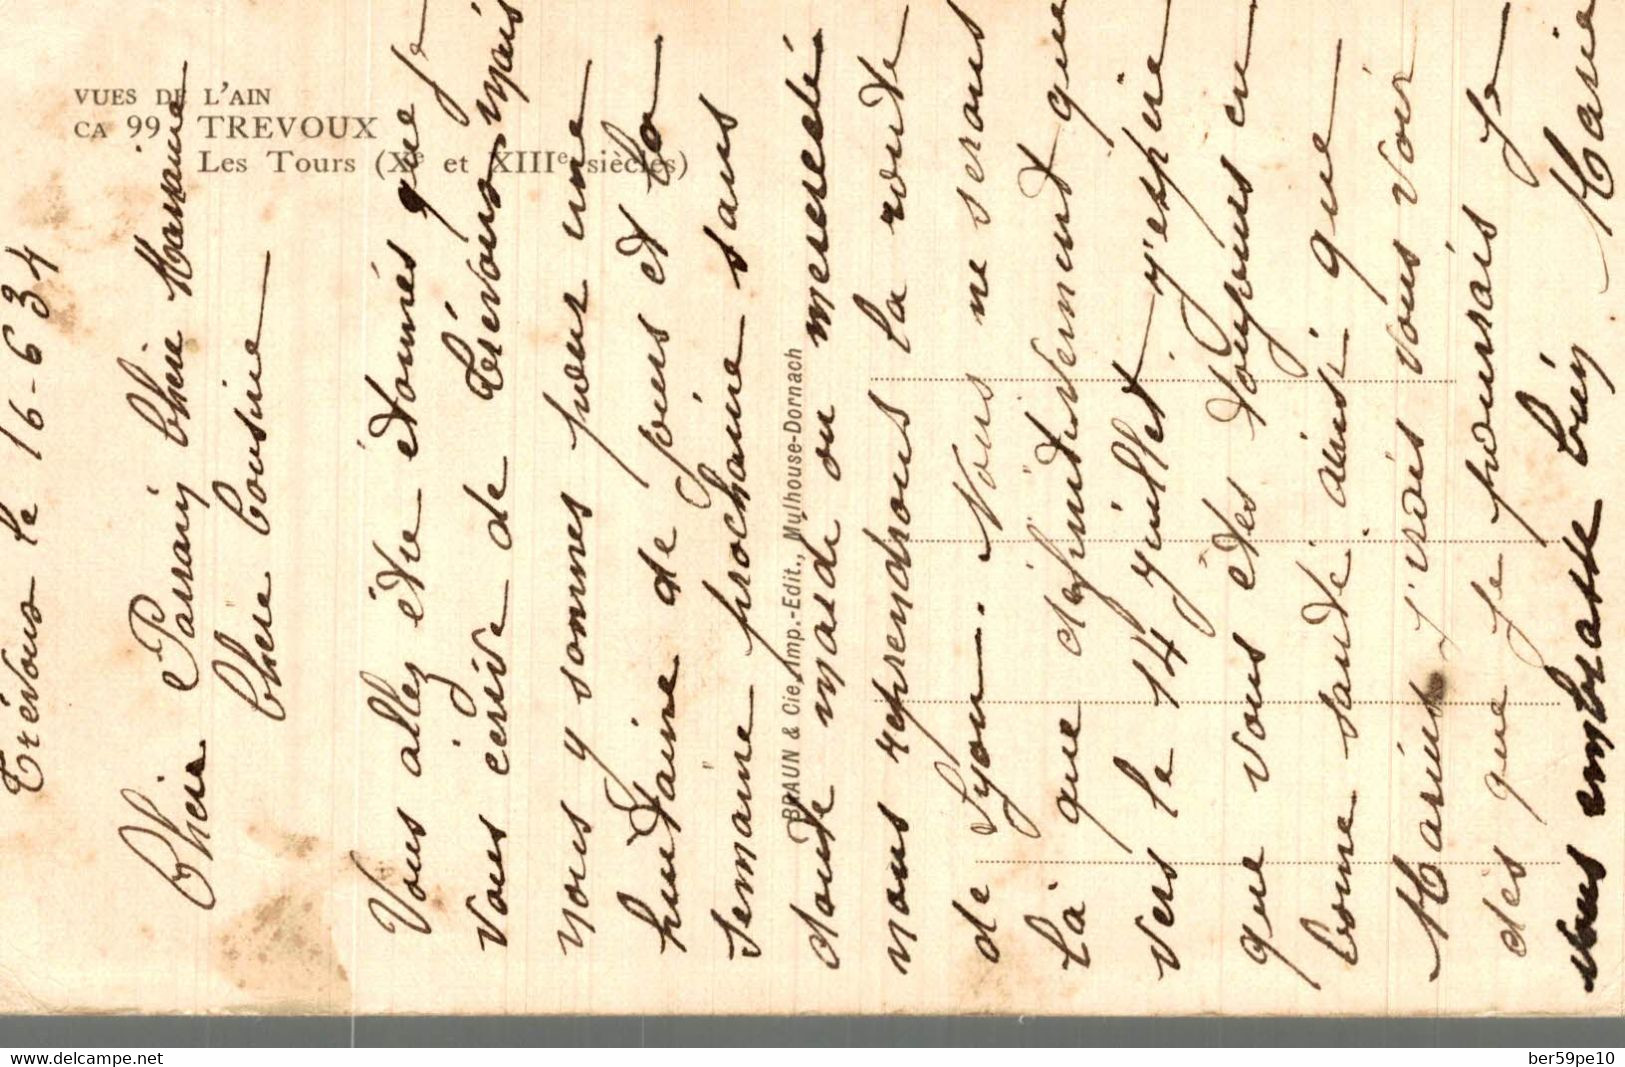 VUES DE L'AIN
CA 99 TREVOUX
Les Tours (Xe et XIIIe siècles)
BRAUN & Cie, Imp.-Edit., Mulhouse-Dornach
Trévoux le 16-6 34
Cher Parrain Chère Marraine
Chère Cousine
Vous allez être étonnés que je
vous écrive de Trévoux mais
nous y sommes pour une
huitaine de jours et la
semaine prochaine sans
doute mardi ou mercredi
nous reprendrons la route
de Lyon. Nous ne serons
là que définitivement que
vers le 14 juillet j'espère
que vous êtes toujours en
bonne santé ainsi que
Marius j'irais vous voir
dès que je pourrais je
vous embrasse bien Marie
www.delcampe.net
ber59pe10